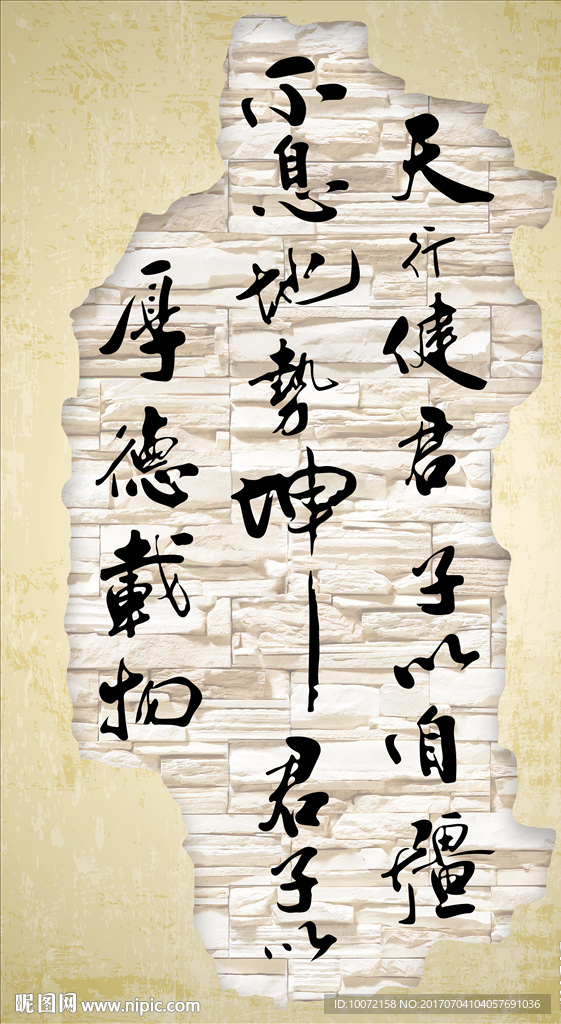 天行健君子以自彊
不息地勢坤君子以
厚德載物
昵图网 www.nipic.com
ID:10072158 NO:20170704104057691036